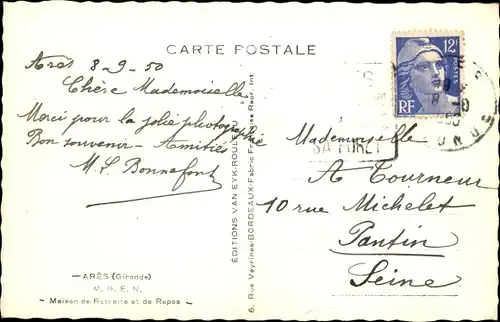 CARTE POSTALE
Arès 8-9-50
Chère Mademoiselle
Merci pour la jolie photographie
Bon souvenir - Amitiés
M.L. Bonnefont
— ARÈS (Gironde) —
M. G. E. N.
- Maison de Retraite et de Repos -
ÉDITIONS VAN EYK-ROUL
6, Rue Veyrines-BORDEAUX-Fabric. Française Repr. Int.
12F
POSTES
RF
SA FORET
Mademoiselle
A Tourneur
10 rue Michelet
Pantin
Seine